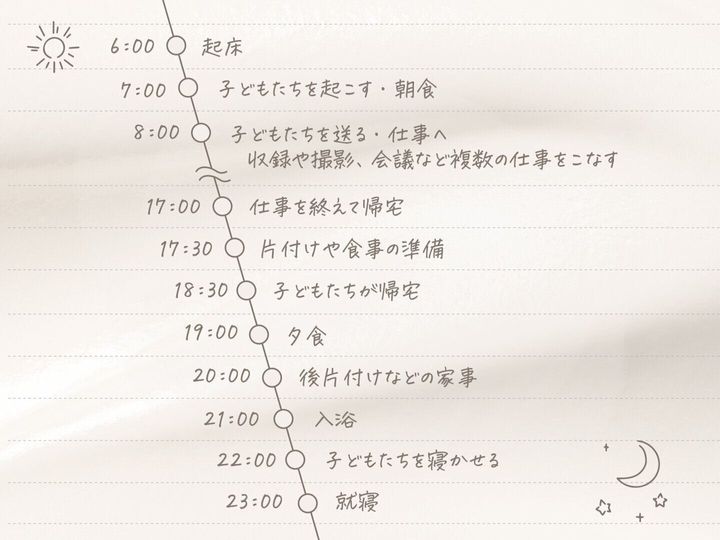 6:00 起床
7:00 子どもたちを起こす・朝食
8:00 子どもたちを送る・仕事へ
収録や撮影、会議など複数の仕事をこなす
17:00 仕事を終えて帰宅
17:30 片付けや食事の準備
18:30 子どもたちが帰宅
19:00 夕食
20:00 後片付けなどの家事
21:00 入浴
22:00 子どもたちを寝かせる
23:00 就寝